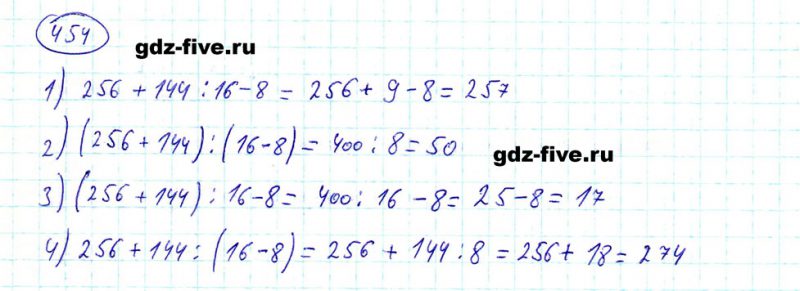 454
gdz-five.ru
1) 256 + 144 : 16 - 8 = 256 + 9 - 8 = 257
2) (256 + 144) : (16 - 8) = 400 : 8 = 50
gdz-five.ru
3) (256 + 144) : 16 - 8 = 400 : 16 - 8 = 25 - 8 = 17
4) 256 + 144 : (16 - 8) = 256 + 144 : 8 = 256 + 18 = 274